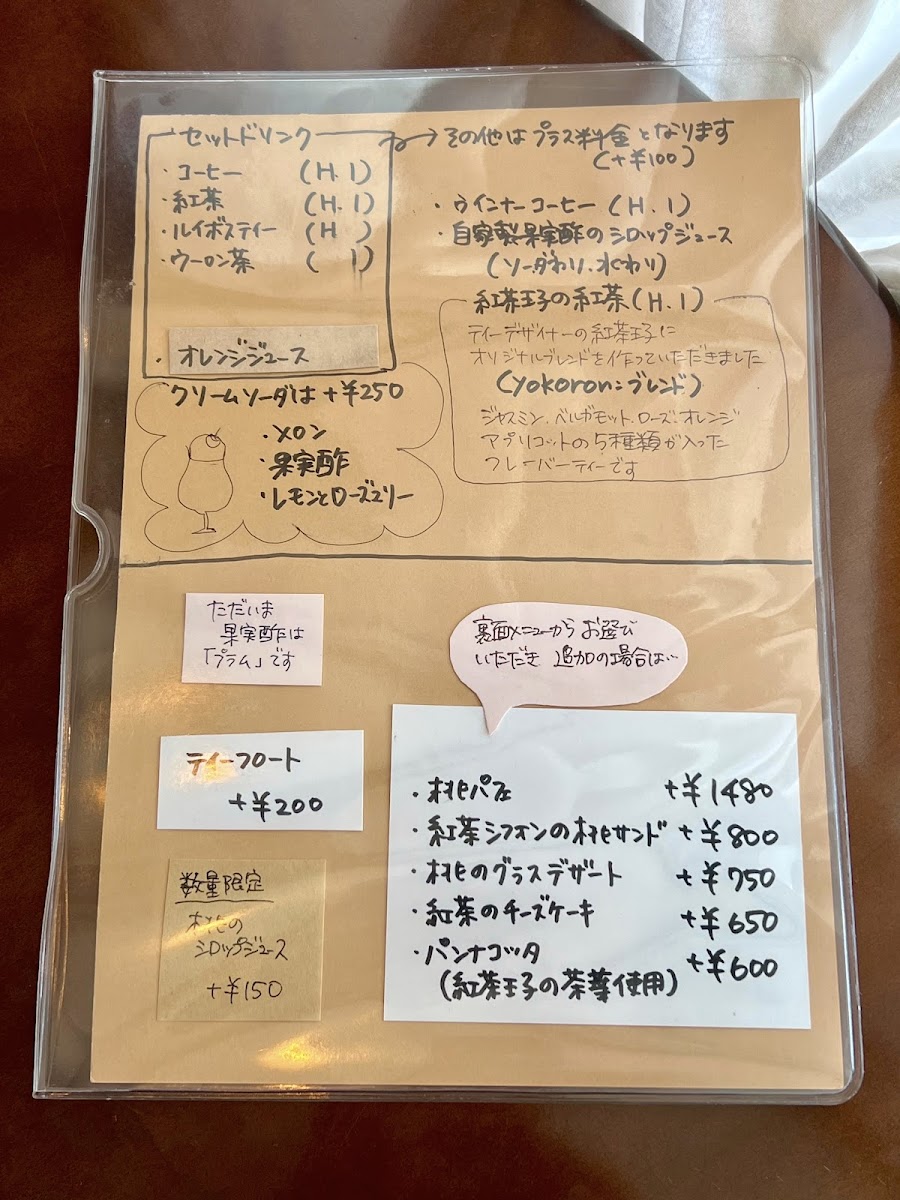 セットドリンク
・コーヒー (H.I)
・紅茶 (H.I)
・ルイボスティー (H )
・ウーロン茶 ( I)
・オレンジジュース
→その他はプラス料金となります
(+¥100)
・ウインナーコーヒー (H.I)
・自家製果実酢のシロップジュース
(ソーダわり、水わり)
紅茶王子の紅茶(H.I)
ティーデザイナーの紅茶王子に
オリジナルブレンドを作っていただきました
(Yokoron:ブレンド)
ジャスミン、ベルガモット、ローズ、オレンジ
アプリコットの5種類が入った
フレーバーティーです
クリームソーダは+¥250
・メロン
・果実酢
・レモンとローズマリー
ただいま
果実酢は
「プラム」です
ティーフロート
+¥200
数量限定
桃の
シロップジュース
+¥150
裏面メニューからお選び
いただき 追加の場合は…
・桃パフェ +¥1480
・紅茶シフォンの桃サンド +¥800
・桃のグラスデザート +¥750
・紅茶のチーズケーキ +¥650
・パンナコッタ +¥600
(紅茶王子の茶葉使用)